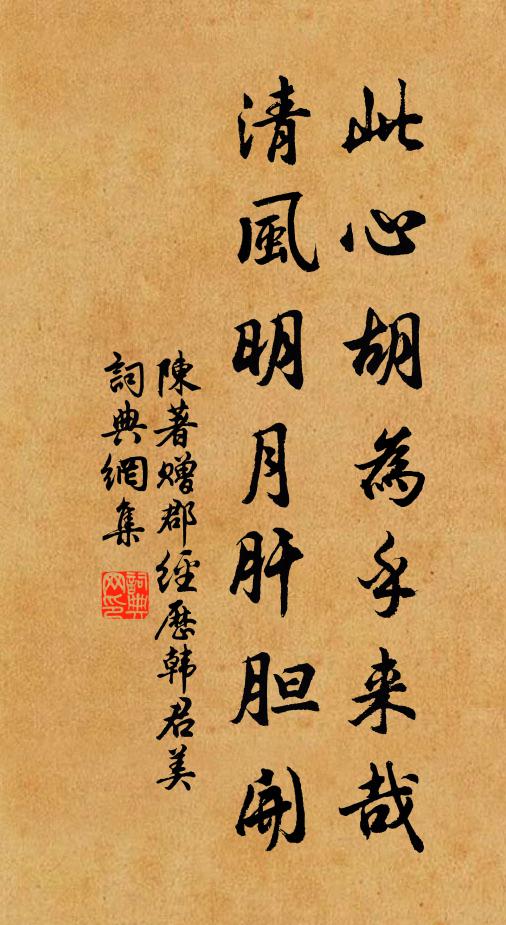 此心胡為乎来哉
清風明月肝胆開
陳著贈郡經歷韓君美
詞典網集
詞典网印